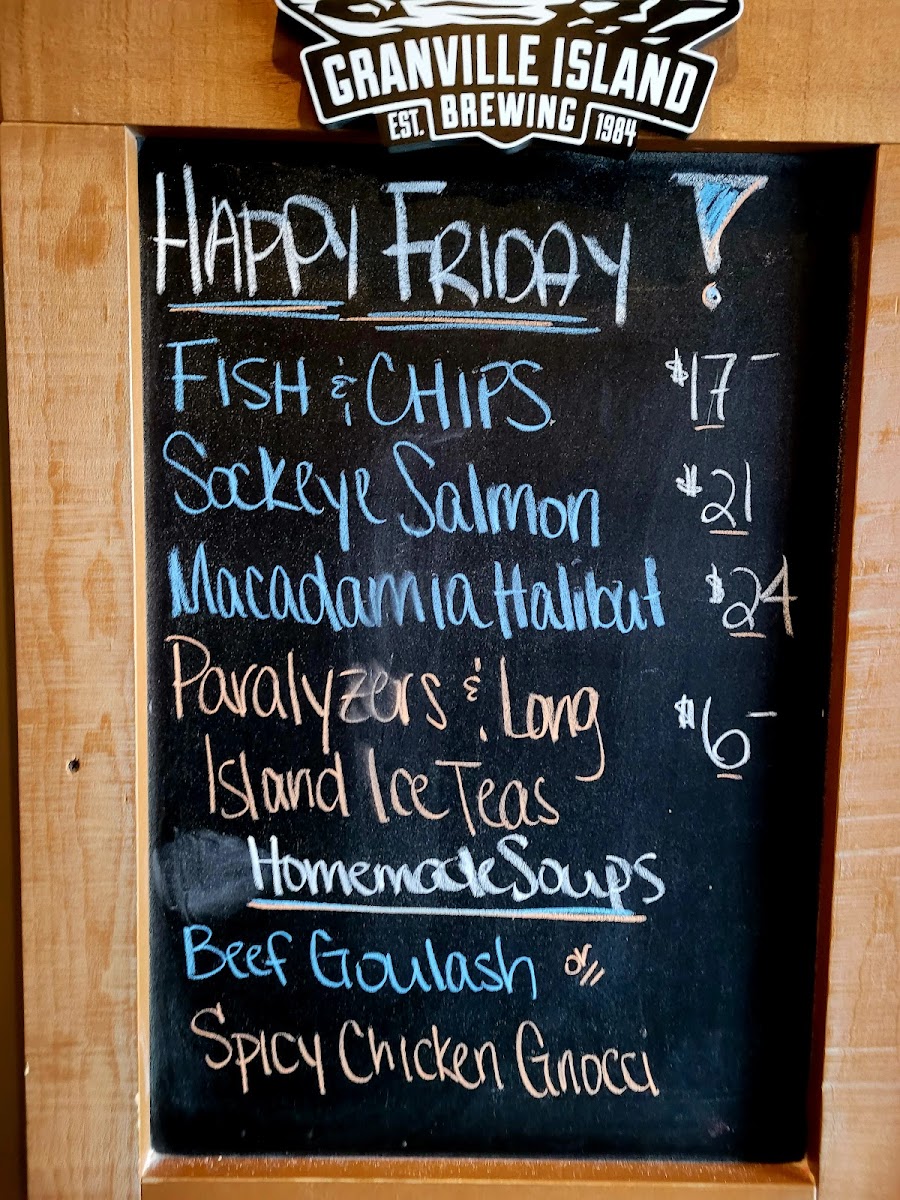 GRANVILLE ISLAND
EST. BREWING 1984
HAPPY FRIDAY !
FISH & CHIPS $17-
Sockeye Salmon $21
Macadamia Halibut $24
Paralyzers & Long $6-
Island Ice Teas
Homemade Soups
Beef Goulash or //
Spicy Chicken Gnocci